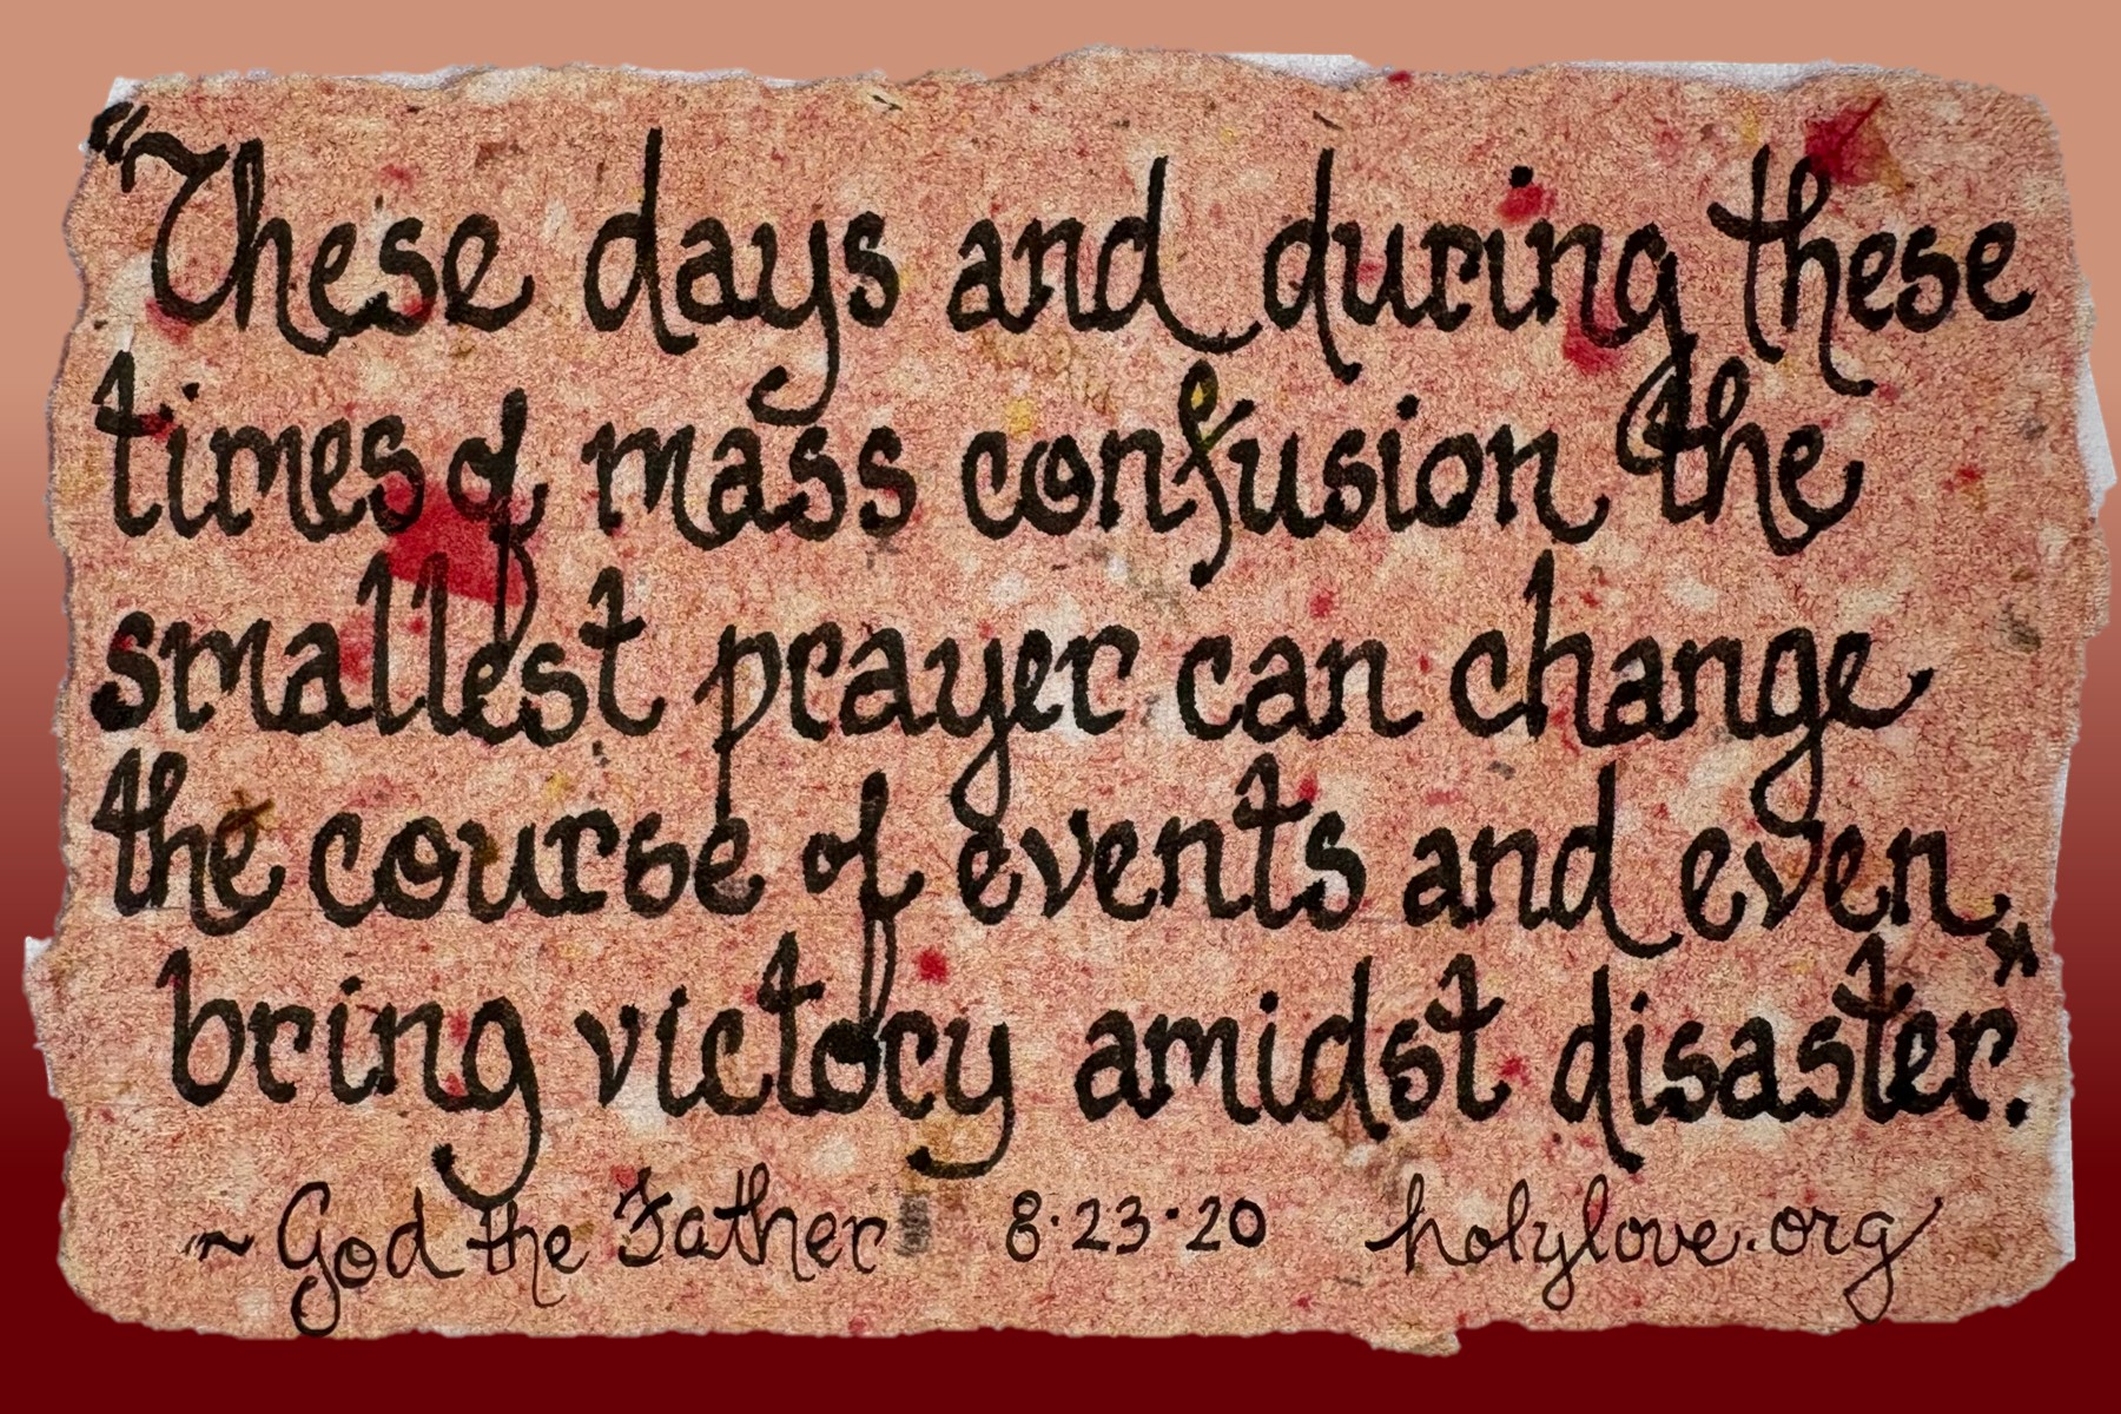 "These days and during these
times of mass confusion the
smallest prayer can change
the course of events and even
bring victory amidst disaster."
~ God the Father 8·23·20 holylove.org